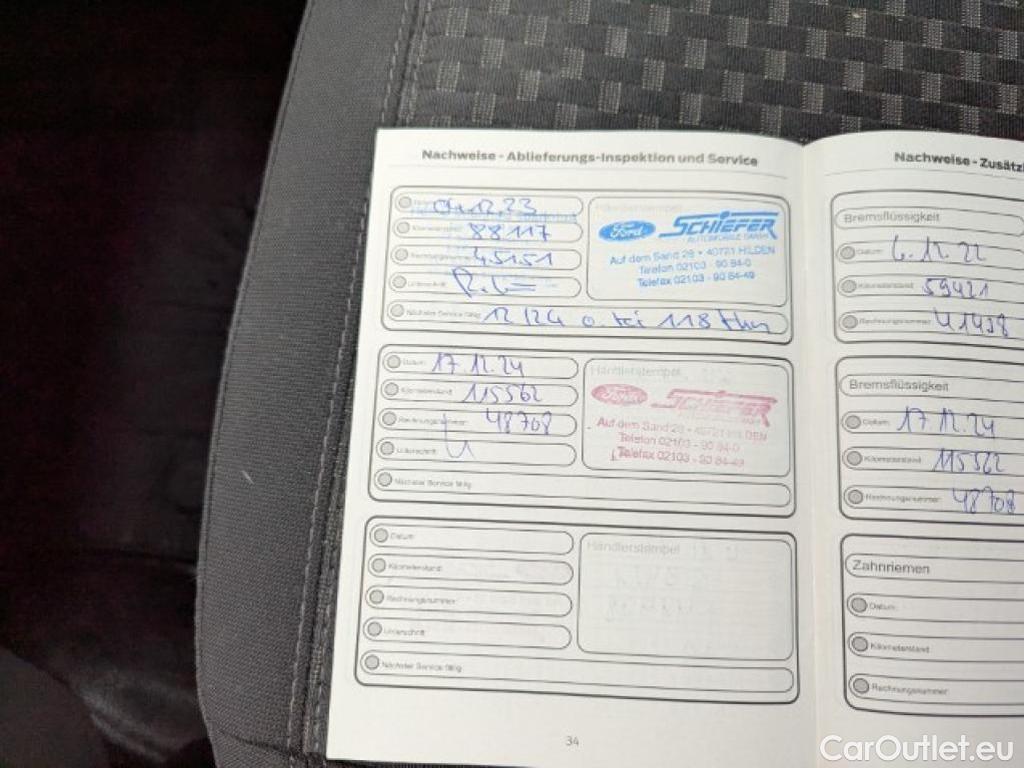 Nachweise - Ablieferungs-Inspektion und Service
88117
45151
Nächster Service fällig: 12/24 o. bei 118 tkm
Händlerstempel
Ford SCHIEFER
AUTOMOBILE GMBH
Auf dem Sand 28 • 40721 HILDEN
Telefon 02103 - 90 84-0
Telefax 02103 - 90 84-49
Datum: 17.12.24
Kilometerstand: 115562
Rechnungsnummer: 48708
Unterschrift:
Nächster Service fällig:
Händlerstempel
Ford SCHIEFER
Auf dem Sand 28 • 40721 HILDEN
Telefon 02103 - 90 84-0
Telefax 02103 - 90 84-49
Datum:
Kilometerstand:
Rechnungsnummer:
Unterschrift:
Nächster Service fällig:
Händlerstempel
34
Nachweise - Zusätzl
Bremsflüssigkeit
Datum: 6.12.22
Kilometerstand: 59421
Rechnungsnummer: 41498
Bremsflüssigkeit
Datum: 17.12.24
Kilometerstand: 115562
Rechnungsnummer: 48708
Zahnriemen
Datum:
Kilometerstand:
Rechnungsnummer:
CarOutlet.eu